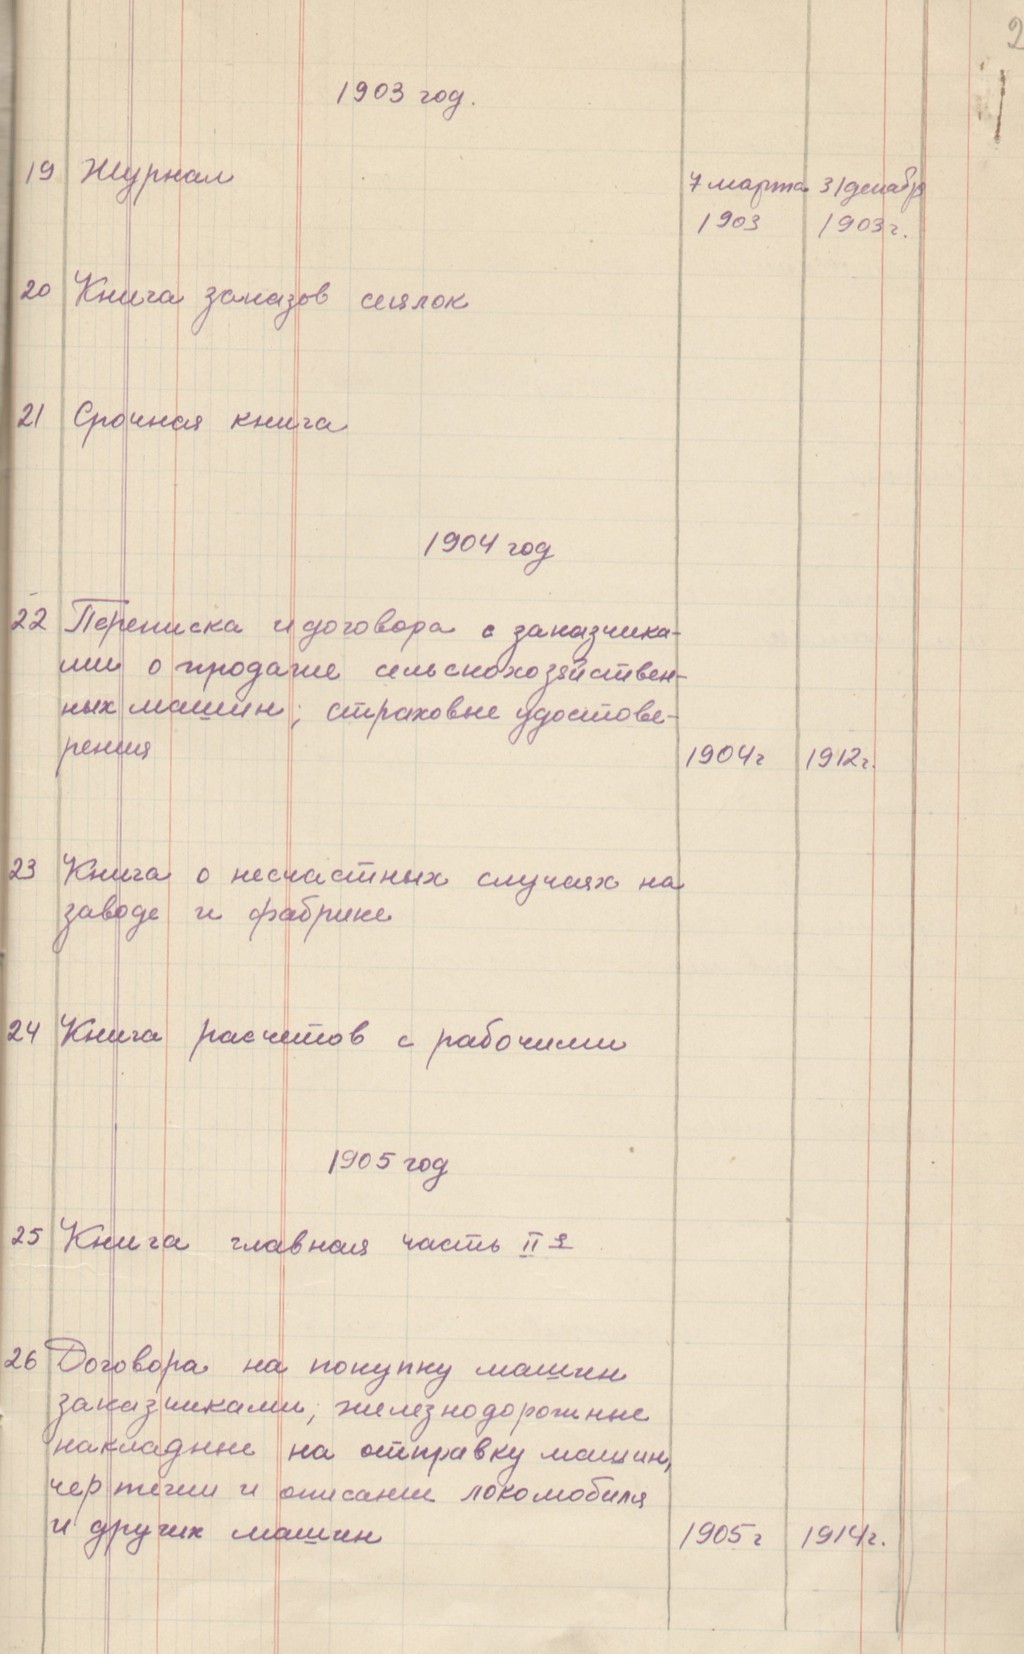 2
1903 год.
19 Журнал
7 марта 31 декабр
1903 1903 г.
20 Книга заказов сеялок
21 Срочная книга
1904 год
22 Переписка и договора с заказчика-
ми о продаже сельскохозяйствен-
ных машин; страховые удостове-
рения 1904 г 1912 г.
23 Книга о несчастных случаях на
заводе и фабрике
24 Книга расчетов с рабочими
1905 год
25 Книга главная часть II я
26 Договора на покупку машин
заказчиками, железнодорожные
накладные на отправку машин,
чертежи и описание локомобиля
и других машин 1905 г 1914 г.